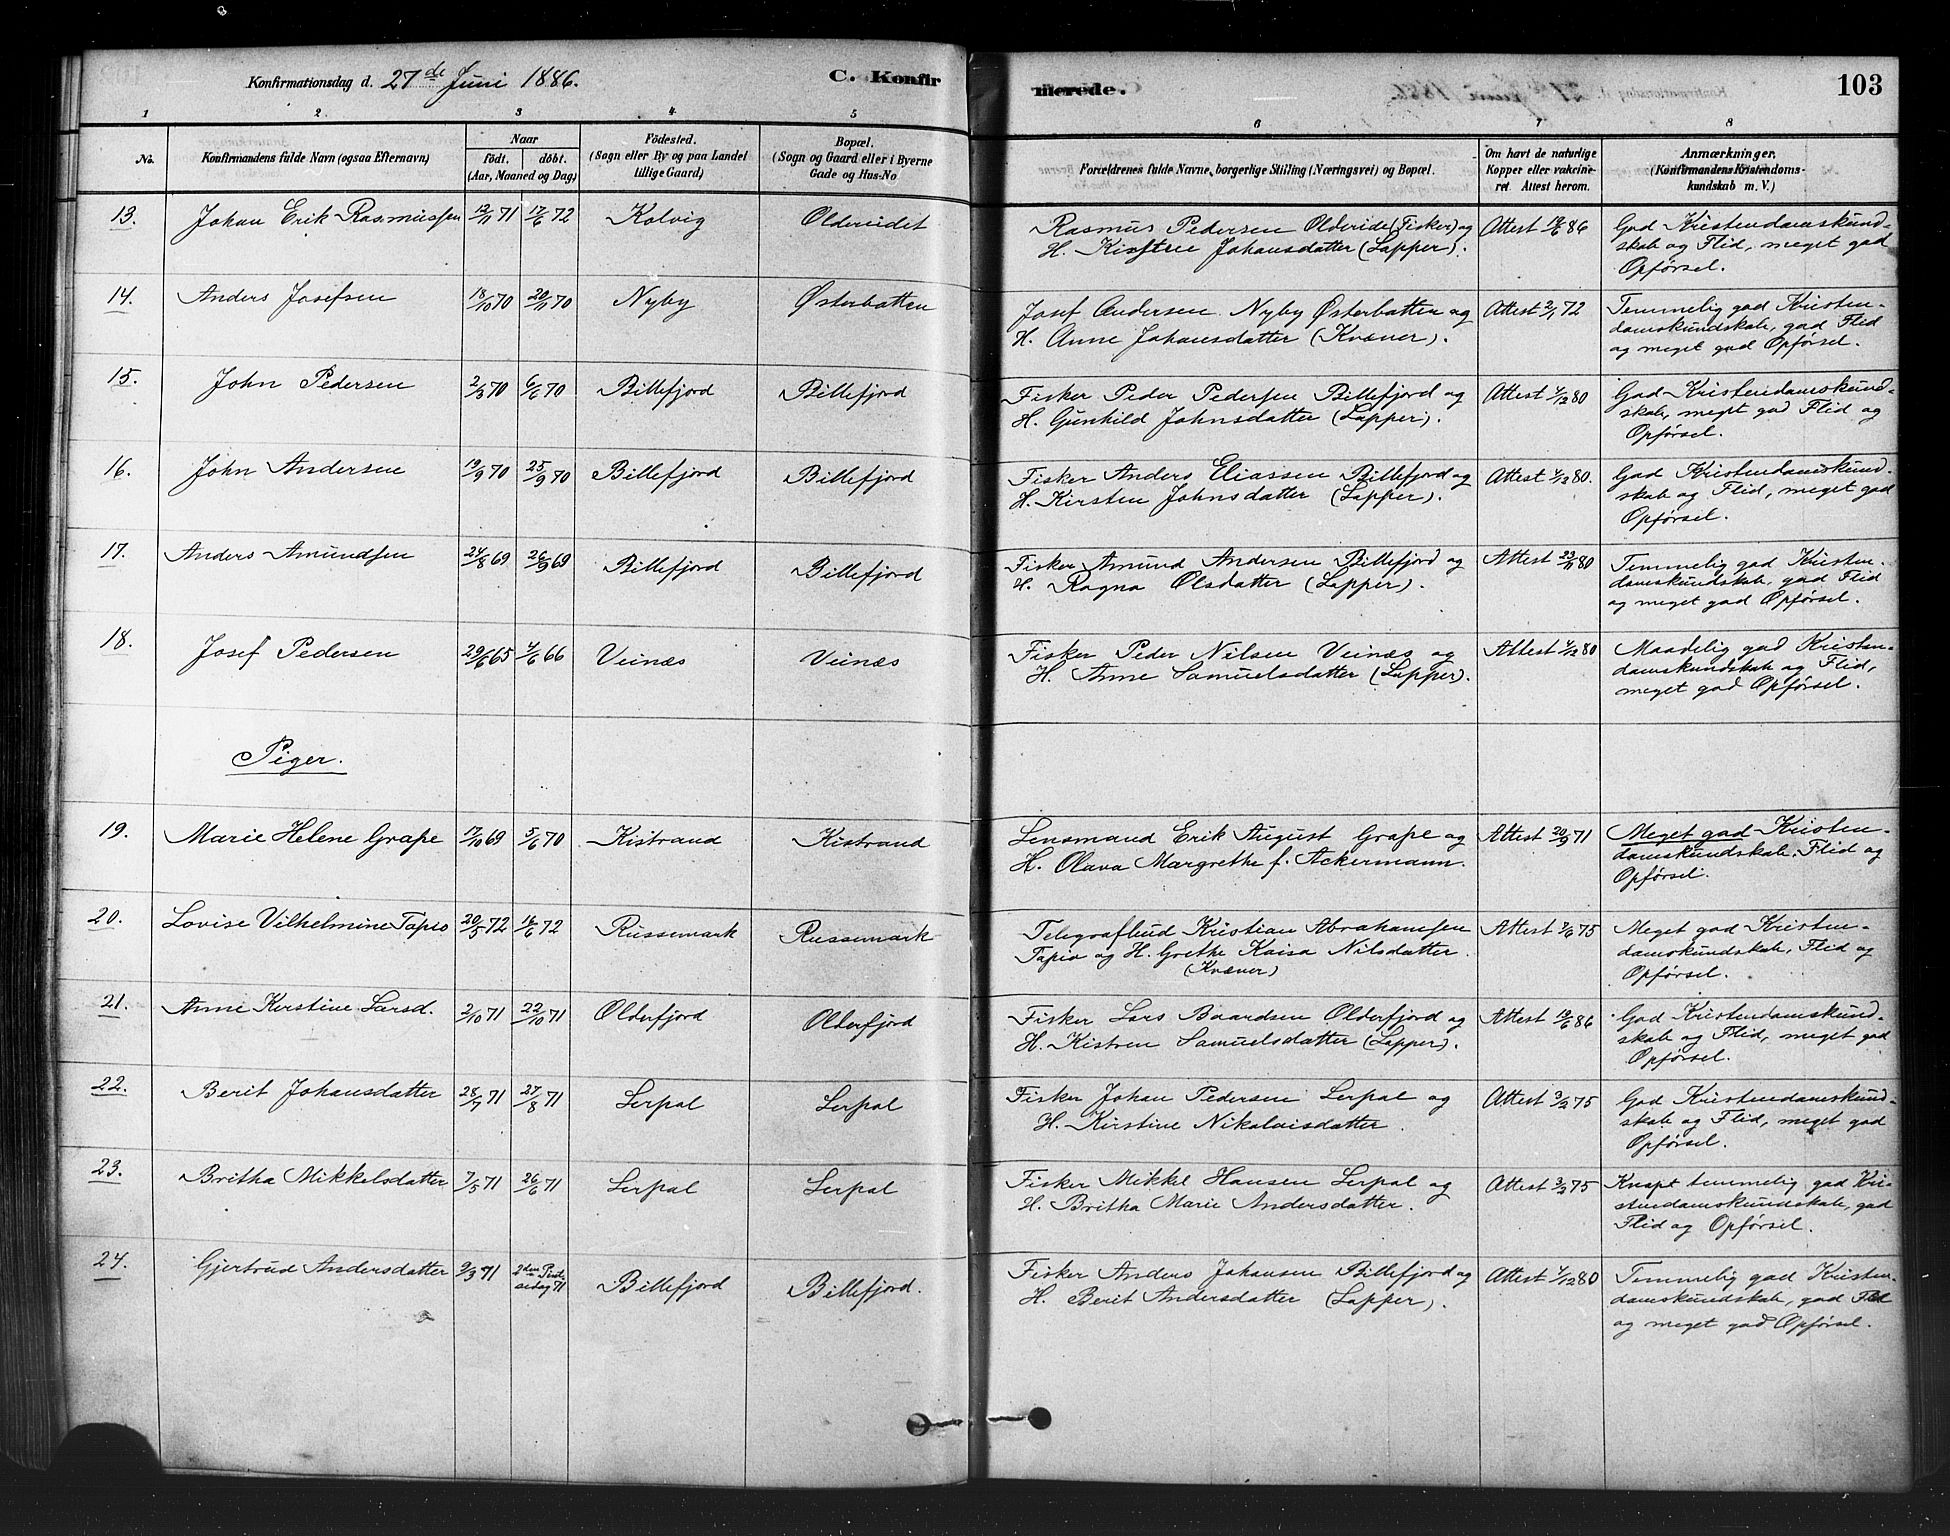 Konfirmationsdag d. 27de Juni 1886.
C. Konfir
merede.
103
1 2 3 4 5 6 7 8
No.
Konfirmandens fulde Navn (ogsaa Efternavn)
Naar
födt. döbt.
(Aar, Maaned og Dag)
Födested.
(Sogn eller By og paa Landet tillige Gaard)
Bopæl.
(Sogn og Gaard eller i Byerne Gade og Hus-No
Forældrenes fulde Navne, borgerlige Stilling (Næringsvei) og Bopæl.
Om havt de naturlige Kopper eller vakcineret. Attest herom.
Anmærkninger.
(Konfirmandens Kristendomskundskab m. V.)
13. Johan Erik Rasmussen 12/11 71 17/6 72 Kolvig Oldereidet
Rasmus Pedersen Oldereide (Fisker) og
H. Kirsten Johansdatter (Lapper).
Attest 19/6 86
God Kristendomskund-
skab og Flid, meget god
Opførsel.
14. Anders Josefsen 18/10 70 20/11 70 Nyby Østerbotten
Josef Andersen Nyby Østerbotten og
H. Anne Johansdatter (Kvæner).
Attest 2/1 72
Temmelig god Kristen-
domskundskab, god Flid
og meget god Opførsel.
15. John Pedersen 2/3 70 6/6 70 Billefjord Billefjord
Fisker Peder Pedersen Billefjord og
H. Gunhild Johnsdatter (Lapper).
Attest 4/12 80
God Kristendomskund-
skab, meget god Flid og
Opførsel.
16. John Andersen 19/9 70 25/9 70 Billefjord Billefjord
Fisker Anders Eliassen Billefjord og
H. Kirsten Johnsdatter (Lapper).
Attest 4/12 80.
God Kristendomskund-
skab og Flid, meget god
Opførsel.
17. Anders Amundsen 24/8 69 26/9 69 Billefjord Billefjord
Fisker Amund Andersen Billefjord og
H. Ragna Olsdatter (Lapper).
Attest 23/11 80
Temmelig god Kristen-
domskundskab, god Flid
og meget god Opførsel.
18. Josef Pedersen 29/6 65 4/6 66 Veinæs Veinæs
Fisker Peder Nilsen Veinæs og
H. Anne Samuelsdatter (Lapper).
Attest 4/12 80
Maadelig god Kristen-
domskundskab og Flid,
meget god Opførsel.
Piger.
19. Marie Helene Grape 17/10 69 5/6 70 Kistrand Kistrand
Lensmand Erik August Grape og
H. Olava Margrethe f. Ackermann.
Attest 20/9 71
Meget god Kristen-
domskundskab, Flid og
Opførsel.
20. Lovise Vilhelmine Tapio 20/5 72 16/6 72 Russemark Russemark
Telegrafbud Kristian Abrahamsen
Tapio og H. Grethe Kaisa Nilsdatter.
(Kvæner)
Attest 7/6 75
Meget god Kristen-
domskundskab, Flid og
Opførsel.
21. Anne Kirstine Larsd. 2/10 71 22/10 71 Olderfjord Olderfjord
Fisker Lars Baardsen Olderfjord og
H. Kistren Samuelsdatter (Lapper).
Attest 19/6 86
God Kristendomskund-
skab og Flid, meget god
Opførsel.
22. Berit Johansdatter 28/7 71 27/8 71 Lerpol Lerpol
Fisker Johan Pedersen Lerpol og
H. Kirstine Nikolaisdatter.
Attest 3/2 75
God Kristendomskund-
skab og Flid, meget god
Opførsel.
23. Britha Mikkelsdatter 7/5 71 26/6 71 Lerpol Lerpol
Fisker Mikkel Hansen Lerpol og
H. Britha Marie Andersdatter.
Attest 3/2 75
Knapt temmelig god Kri-
stendomskundskab, god
Flid og Opførsel.
24. Gjertrud Andersdatter 9/3 71 2den Pint-
sedag 71 Billefjord Billefjord.
Fisker Anders Johansen Billefjord og
H. Berit Andersdatter (Lapper).
Attest 4/12 80
Temmelig god Kristen-
domskundskab, god Flid
og meget god Opførsel.